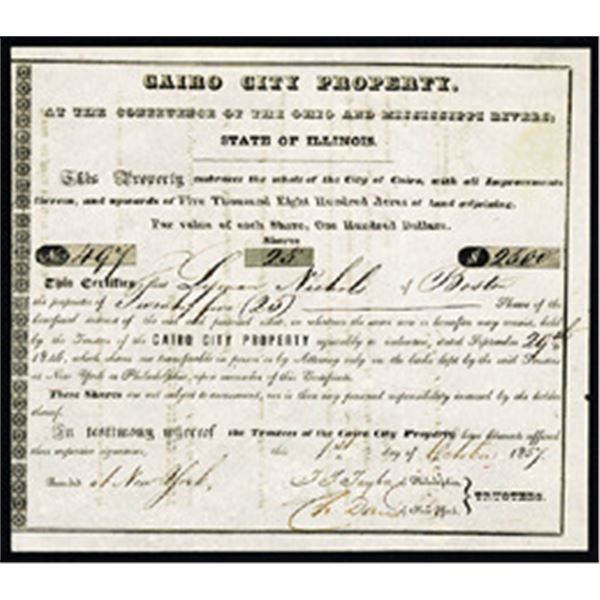 CAIRO CITY PROPERTY.
AT THE CONFLUENCE OF THE OHIO AND MISSISSIPPI RIVERS;
STATE OF ILLINOIS.
This Property embraces the whole of the City of Cairo, with all Improvements
thereon, and upwards of Five Thousand Eight Hundred Acres of land adjoining.
Par value of each Share, One Hundred Dollars.
Shares
No 497 25 $ 2500
This Certifies that Lyman Nichols of Boston
the proprietor of Twenty five (25) Shares of the
beneficial interest of the real and personal estate, in whatever the same now is or hereafter may consist, held
by the Trustees of the CAIRO CITY PROPERTY agreeably to indenture, dated September 29th
1846, which shares are transferable in person or by Attorney only on the books kept by the said Trustees
at New York or Philadelphia, upon surrender of this Certificate.
These Shares are not subject to assessment, nor is there any personal responsibility incurred by the holder
thereof.
In testimony whereof the Trustees of the Cairo City Property have hereunto affixed
their respective signatures, this 1st day of October 1857.
Recorded at New York.
T S Taylor of Philadelphia
of New York.
TRUSTEES.